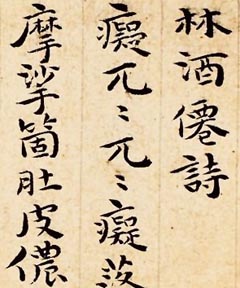 林酒僊詩
癡兀〻兀〻癡落
摩挲箇肚皮儂